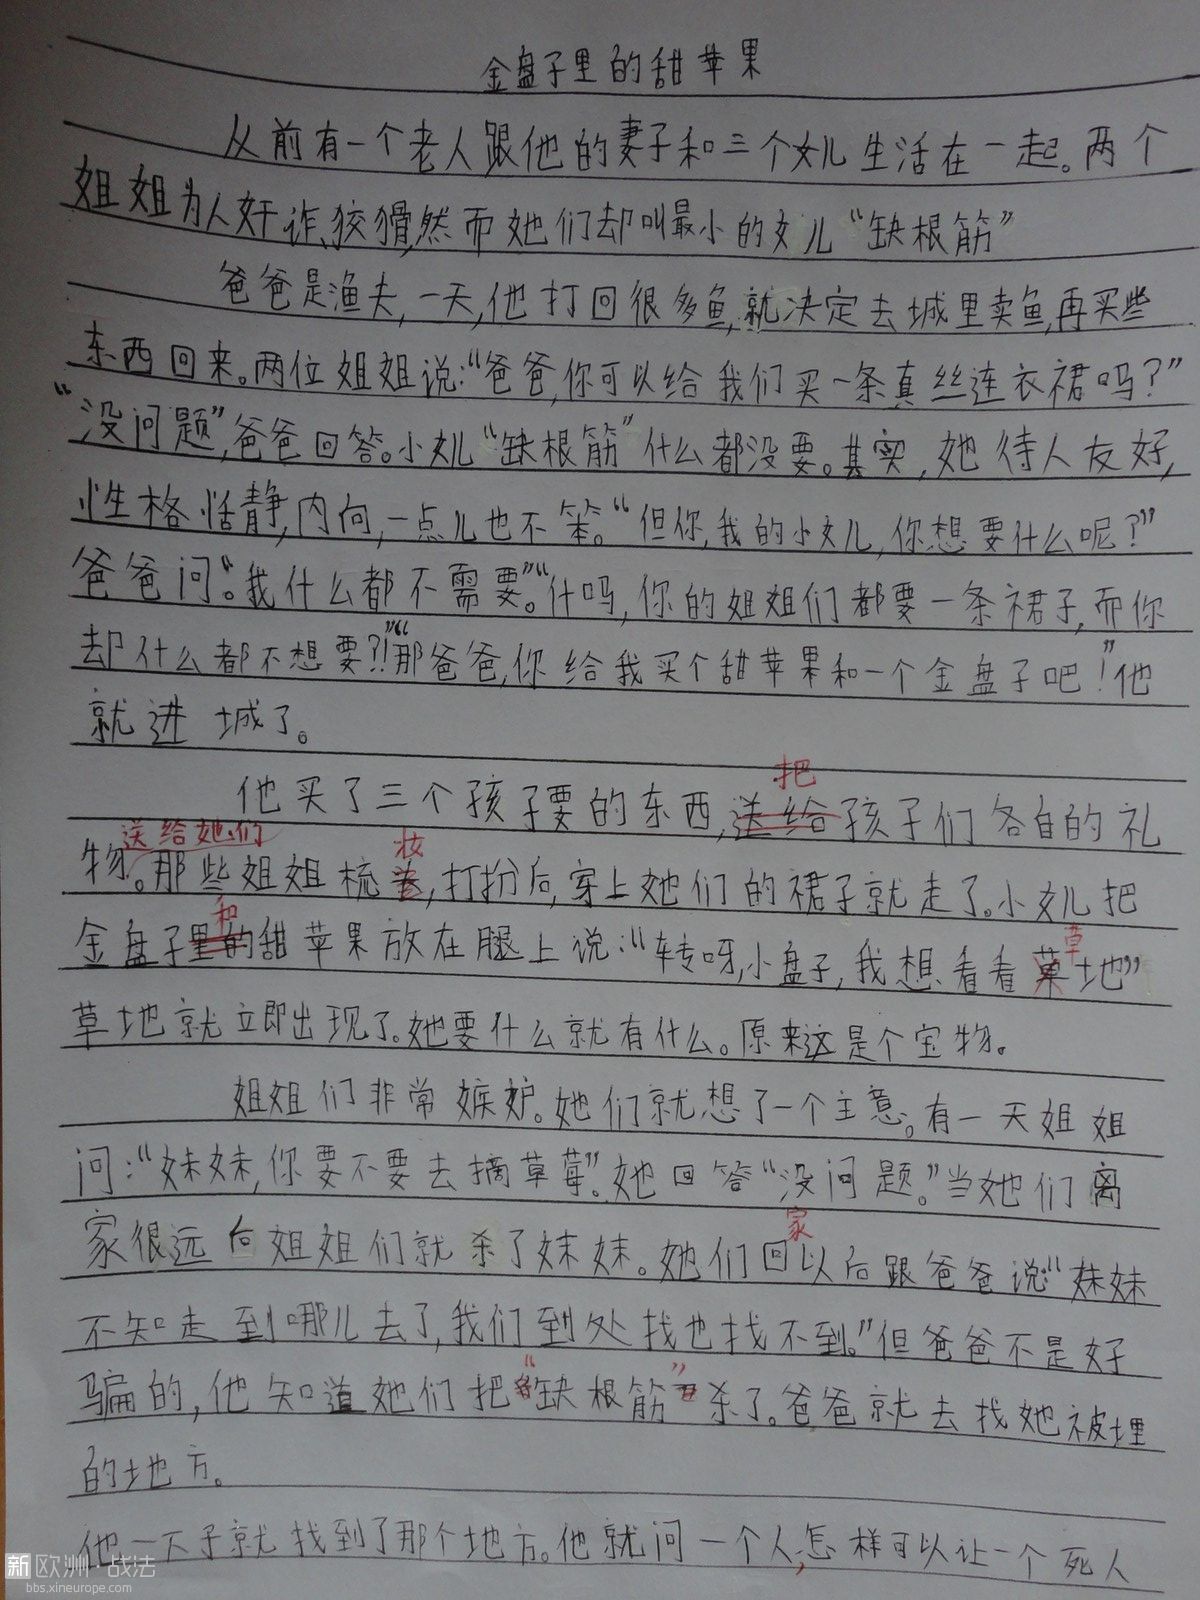 金盘子里的甜苹果
从前有一个老人跟他的妻子和三个女儿生活在一起。两个
姐姐为人奸诈、狡猾,然而她们却叫最小的女儿“缺根筋”
爸爸是渔夫,一天,他打回很多鱼,就决定去城里卖鱼,再买些
东西回来。两位姐姐说:“爸爸,你可以给我们买一条真丝连衣裙吗?”
“没问题”,爸爸回答。小女儿“缺根筋”什么都没要。其实,她待人友好,
性格恬静,内向,一点儿也不笨。“但你,我的小女儿,你想要什么呢?”
爸爸问。“我什么都不需要。”“什吗,你的姐姐们都要一条裙子,而你
却什么都不想要?!”“那爸爸,你给我买个甜苹果和一个金盘子吧!”他
就进城了。
把
他买了三个孩子要的东西,送给孩子们各自的礼
送给她们 妆
物。那些姐姐梳,打扮后,穿上她们的裙子就走了。小女儿把
和 草
金盘子里的甜苹果放在腿上说:“转呀,小盘子,我想看看地”
草地就立即出现了。她要什么就有什么。原来这是个宝物。
姐姐们非常嫉妒。她们就想了一个主意。有一天姐姐
问:“妹妹,你要不要去摘草莓”。她回答“没问题。”当她们离
家
家很远后姐姐们就杀了妹妹。她们回以后跟爸爸说:“妹妹
不知走到哪儿去了,我们到处找也找不到。”但爸爸不是好
骗的,他知道她们把“缺根筋”杀了。爸爸就去找她被埋
的地方。
他一下子就找到了那个地方。他就问一个人,怎样可以让一个死人
新欧洲 战法
bbs.xineurope.com